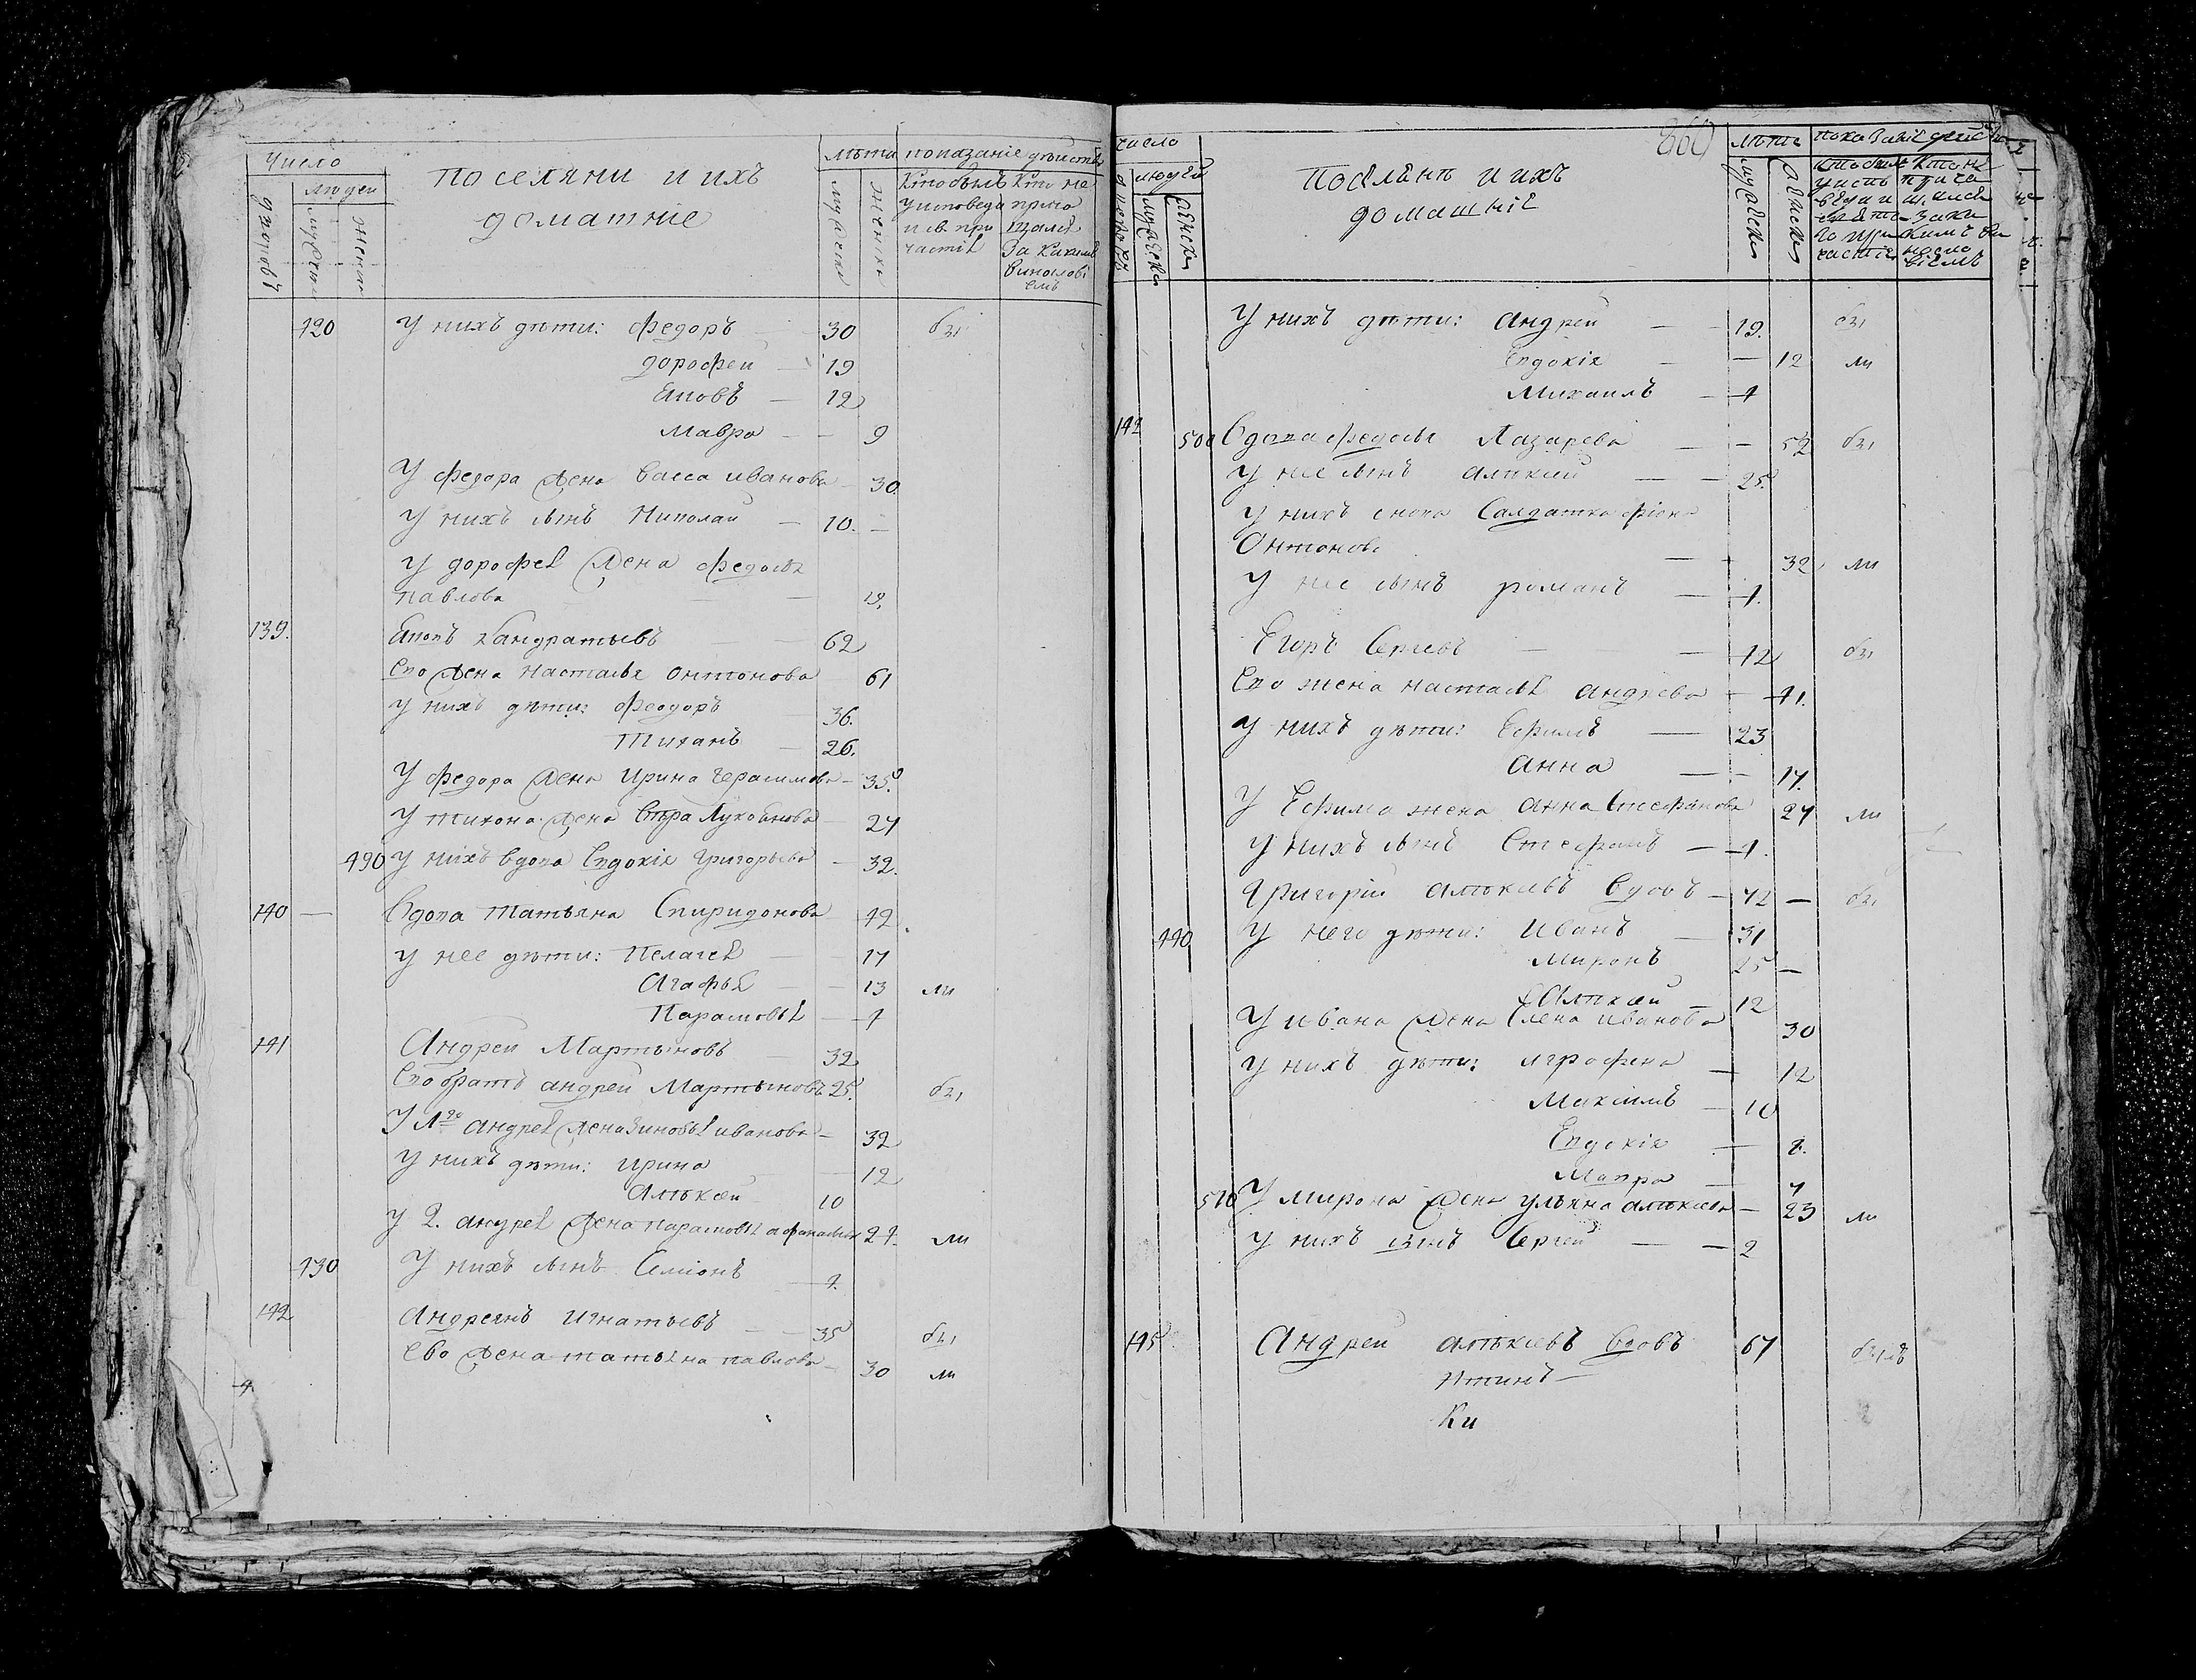 Число
людей
дворовъ
мужеска
женска
поселяни и ихъ
домашние
лѣта
мужеска
женска
показание дѣйств
Кто былъ Кто не
у исповеди прио
и св. при щался
частiя За какимъ
винослови
емъ
420 У нихъ дѣти: федоръ 30 бы
дорофеи 19
Яковъ 12
Мавра 9
У федора жена Васса иванова 30
У нихъ сынъ Николаи 10.
У дорофея жена федосья
павлова 19.
139. Яковъ Кандратьевъ 62
Ево жена Настасья онтонова 61
У нихъ дѣти: Феодоръ 36.
Тиханъ 26.
У федора жена ирина герасимова 35.
У тихона жена вѣра Лукоянова 24
490 У нихъ вдова Евдокiя григорьева 32.
140 Вдова татьяна Спиридонова 42.
У нее дѣти: Пелагея 17
Агафья 13 ли
Парасковья 4
141 Андреи Мартыновъ 32
Ево братъ андреи Мартыновъ 25. бы
У 1го андрея жена зиновья иванова 32
У нихъ дѣти: ирина 12
Алѣкеи 10
У 2. андрея жена парасковья афанасьева 24. ли
430 У нихъ сынъ Семiонъ 4.
142 Андреянъ игнатьевъ 35 бы
Ево жена татьяна павлова 30 ли
860
число
людей
мужеска
женска
Поселянъ и ихъ
домашнiе
лѣта
мужеска
женска
У нихъ дѣти: андреи 19. бы
Евдокiя 12 ли
Михаилъ 4
142 500 Вдова федосья Лазарева 52 бы
У нее сынъ алѣкеи 25.
У нихъ сноха Салдатка фiона
Онтонова 32 ли
У нее сынъ романъ 4.
Егоръ Сергевъ 42 бы
Ево жена настасья андреева 41.
У нихъ дѣти: Ефимъ 23
Анна 14.
У Ефима жена анна Стефанова 24 ли
У нихъ сынъ Стефанъ 4.
Григорiи алѣкевъ вдовъ 42 бы
440 У него дѣти: иванъ 31
Миронъ 25
Алѣкеи 12
У ивана жена Елена иванова 30
У нихъ дѣти: агрофена 12
Максимъ 10
Евдокiя 8.
Мавра 4
510 У мирона жена ульяна алѣкева 23 ли
У нихъ сынъ Сергеи 2
145 Андреи алѣкевъ вдовъ 67
Ки